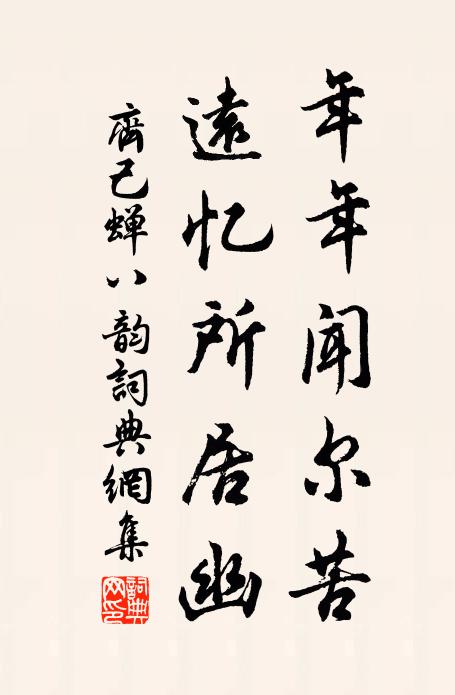 年年闻尔苦
遠忆所居幽
齊己蝉八韵詞典網集
詞典网印